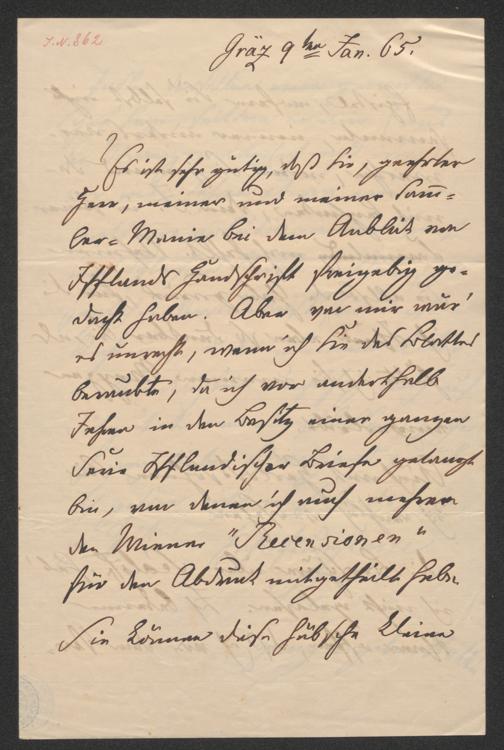 J.N. 862
Gräz 9ten Jan. 65.
Es ist sehr gütig, daß Sie, geehrter
Herr, meiner und meiner Samm-
ler-Manie bei dem Anblick von
Ifflands Handschrift freigebig ge-
dacht haben. Aber von mir wär'
es unrecht, wenn ich Sie des Blattes
beraubte, da ich vor anderthalb
Jahren in den Besitz einer ganzen
Serie Ifflandischer Briefe gelangt
bin, von denen ich auch mehrere
den Wiener "Recensionen"
für den Abdruck mitgetheilt habe.
Sie können diese hübsche kleine